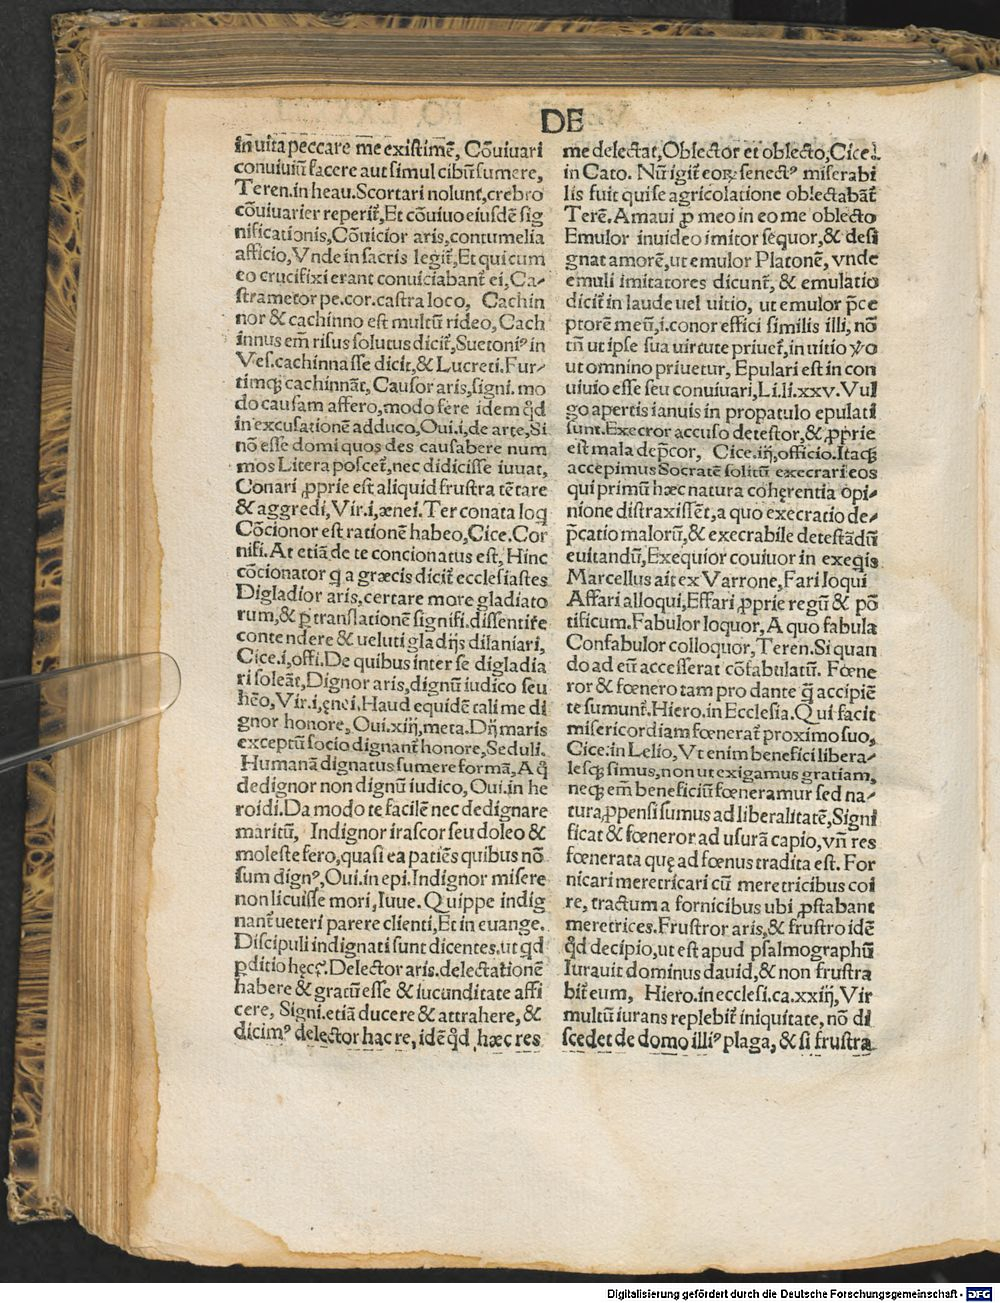 DE
in uita peccare me existimē, Cōuiuari
conuiuiū facere aut simul cibū sumere,
Teren.in heau. Scortari nolunt, crebro
cōuiuarier reperit᷑, Et cōuiuo eiusdē sig
nificationis, Cōuicior aris, contumelia
afficio, Vnde in sacris legit᷑, Et qui cum
eo crucifixi erant conuiciabant᷑ ei, Ca⸗
strametor pe.cor.castra loco, Cachin
nor & cachinno est multū rideo, Cach
innus em̄ risus solutus dicit᷑, Suetoniꝰ in
Ves.cachinnasse dicit, & Lucreti. Fur⸗
timqꝫ cachinnāt, Causor aris, signi. mo
do causam affero, modo fere idem qd̄
in excusationē adduco, Oui.i, de arte, Si
nō esse domi quos des causabere num
mos Litera poscet᷑, nec didicisse iuuat,
Conari ꝓprie est aliquid frustra tētare
& aggredi, Vir.i, ænei. Ter conata loq
Cōcionor est rationē habeo, Cice. Cor
nifi. At etiā de te concionatus est, Hinc
cōcionator q̄ a græcis dicit᷑ ecclesiastes
Digladior aris, certare more gladiato
rum, & ꝑ translationē signifi. dissentire
contendere & ueluti gladijs dilaniari,
Cice.i, offi. De quibus inter se digladia
ri soleāt, Dignor aris, dignū iudico seu
hēo, Vir.i, ęnei. Haud equidē tali me di
gnor honore, Oui.xiij, meta. Dij maris
exceptū socio dignant᷑ honore, Seduli.
Humanā dignatus sumere formā, A q̄
dedignor non dignū iudico, Oui.in he
roidi. Da modo te facilē nec dedignare
maritū, Indignor irascor seu doleo &
moleste fero, quasi ea patiēs quibus nō
sum dignꝰ, Oui.in epi. Indignor misere
non licuisse mori, Iuue. Quippe indig
nant᷑ ueteri parere clienti, Et in euange.
Discipuli indignati sunt dicentes. ut qd
ꝑditio hęc? Delector aris. delectationē
habere & gratū esse & iucunditate affi
cere, Signi. etiā ducere & attrahere, &
dicimꝰ delector hac re, idē qd̄ hæc res
me delectat, Oblector et oblecto, Cice.
in Cato. Nū igit᷑ eoꝝ senectꝰ miserabi
lis fuit qui se agricolatione oblectabāt
Terē. Amaui ꝓ meo in eo me oblecto
Emulor inuideo imitor sequor, & desi
gnat amorē, ut emulor Platonē, vnde
emuli imitatores dicunt᷑, & emulatio
dicit᷑ in laude uel uitio, ut emulor p̄ce
ptorē meū, i. conor effici similis illi, nō
tn̄ ut ipse sua uirtute priuet᷑, in uitio ꝟo
ut omnino priuetur, Epulari est in con
uiuio esse seu conuiuari, Li.li.xxv. Vul
go apertis ianuis in propatulo epulati
sunt. Execror accuso detestor, & ꝓprie
est mala dep̄cor, Cice.iij, officio. Itaqꝫ
accepimus Socratē solitū execrari eos
qui primū hæc natura cohęrentia opi⸗
nione distraxissēt, a quo execratio de⸗
p̄catio malorū, & execrabile detestādū
euitandū, Exequior couiuor in exeqis
Marcellus ait ex Varrone, Fari loqui
Affari alloqui, Effari ꝓprie regū & pō
tificum. Fabulor loquor, A quo fabula
Confabulor colloquor, Teren. Si quan
do ad eū accesserat cōfabulatū. Fœne
ror & fœnero tam pro dante q̄ accipiē
te sumunt᷑. Hiero. in Ecclesia. Qui facit
misericordiam fœnerat᷑ proximo suo,
Cice. in Lelio, Vt enim benefici libera⸗
lesqꝫ simus, non ut exigamus gratiam,
neqꝫ em̄ beneficiū fœneramur sed na⸗
tura ꝓpensi sumus ad liberalitatē, Signi
ficat & fœneror ad usurā capio, vn̄ res
fœnerata quę ad fœnus tradita est. For
nicari meretricari cū meretricibus coi
re, tractum a fornicibus ubi ꝓstabant
meretrices. Frustror aris, & frustro idē
qd̄ decipio, ut est apud psalmographū
Iurauit dominus dauid, & non frustra
bit᷑ eum, Hiero. in ecclesi. ca.xxiij, Vir
multū iurans replebit᷑ iniquitate, nō di
scedet de domo illiꝰ plaga, & si frustra
Digitalisierung gefördert durch die Deutsche Forschungsgemeinschaft - DFG